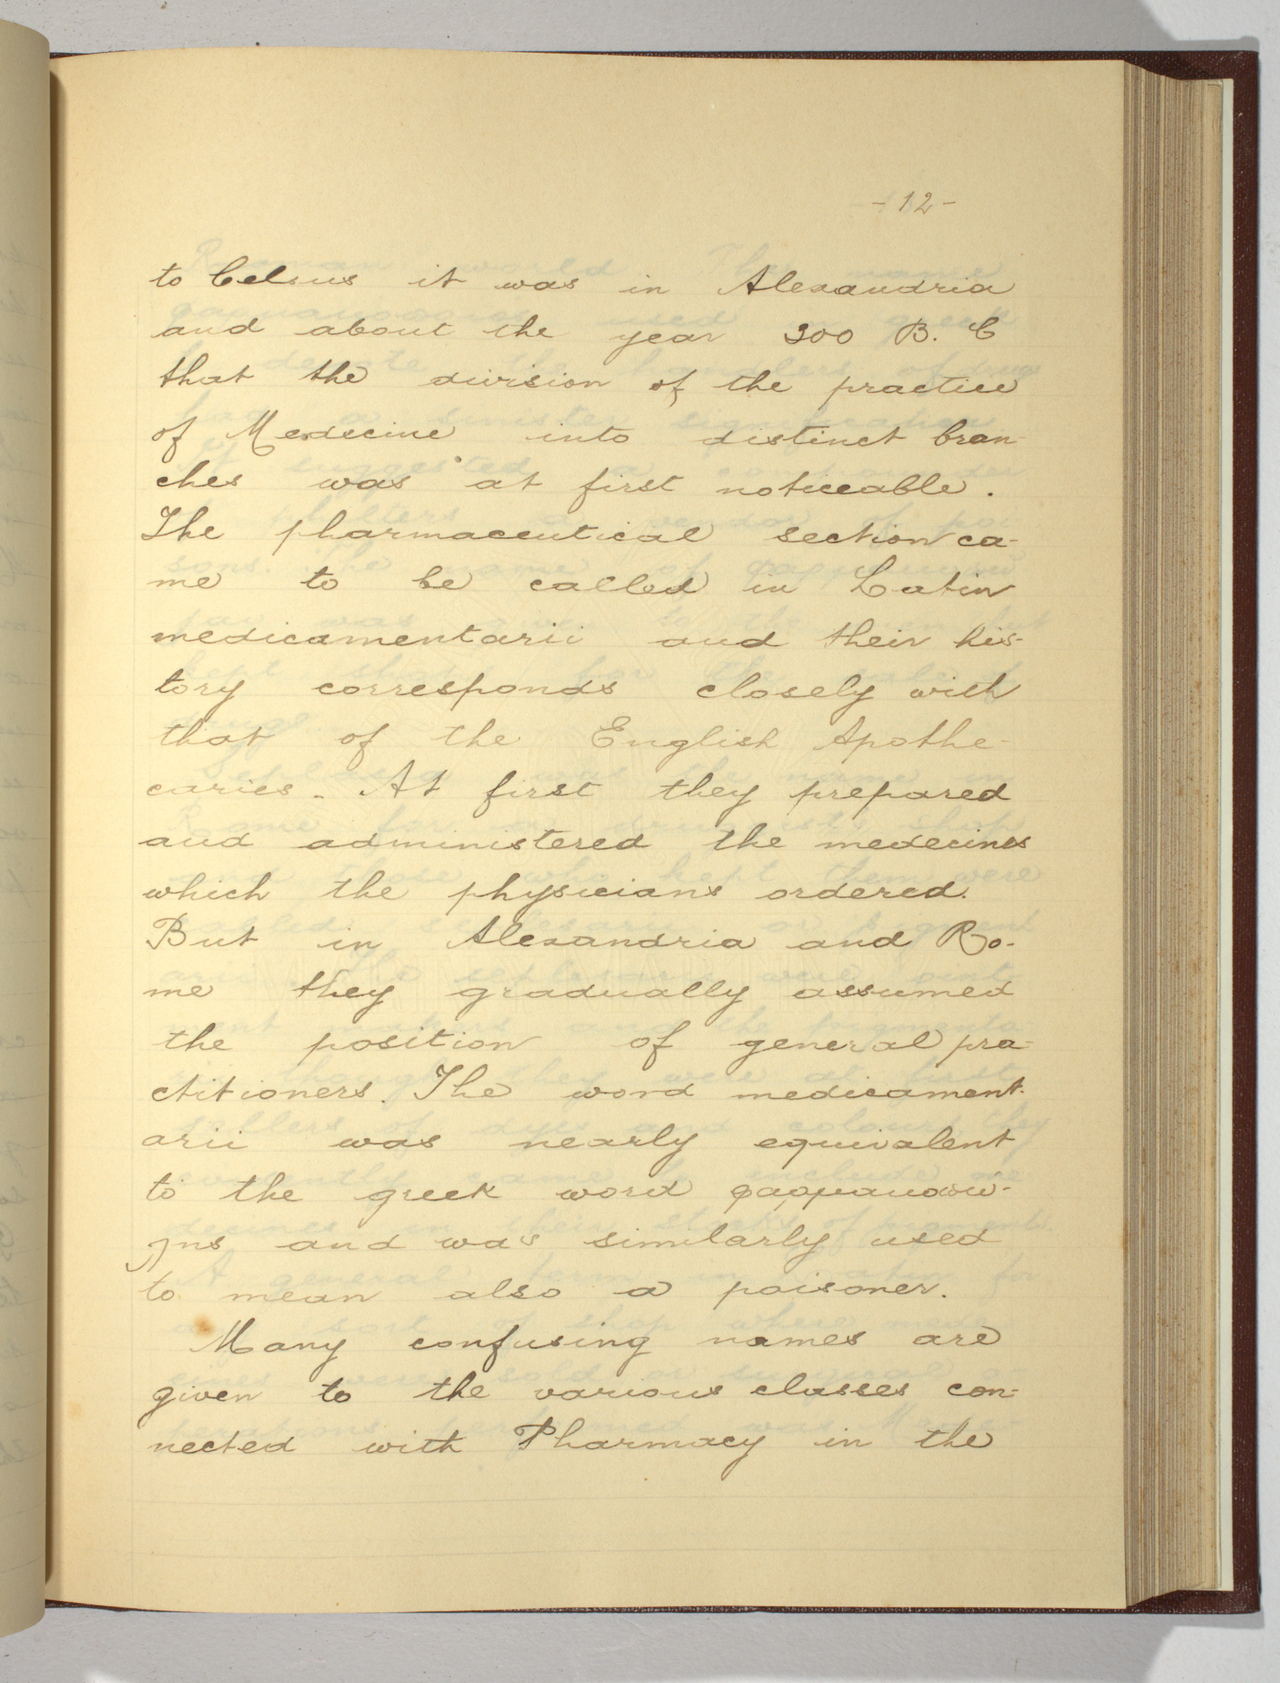 - 12 -
to Celsus it was in Alexandria
and about the year 300 B. C
that the division of the practice
of Medecine into distinct bran-
ches was at first noticeable.
The pharmaceutical section ca-
me to be called in Latin
medicamentarii and their his-
tory corresponds closely with
that of the English Apothe-
caries. At first they prepared
and administered the medecines
which the physicians ordered.
But in Alexandria and Ro-
me they gradually assumed
the position of general pra-
ctitioners. The word medicament-
arii was nearly equivalent
to the greek word
and was similarly used
to mean also a poisoner.
Many confusing names are
given to the various classes con-
nected with Pharmacy in the